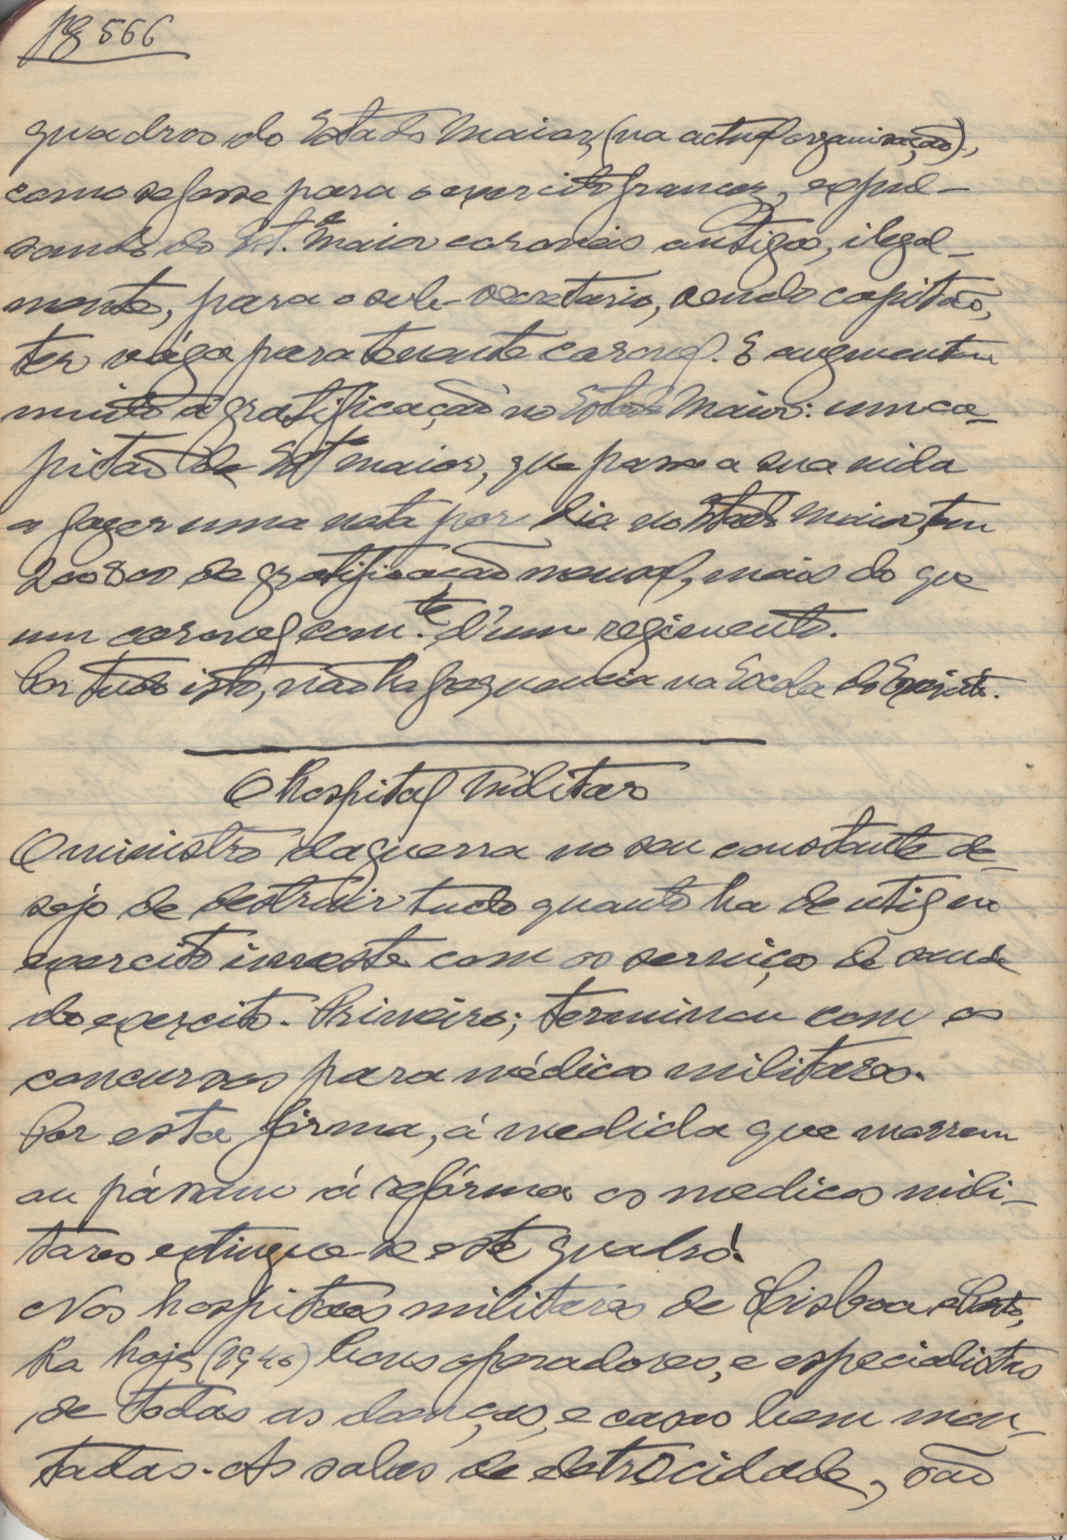 pg 566
quadros do Estado Maior, (na actual organisação),
como se fosse para o exercito francez, expul-
sando do Est.º Maior coroneis antigos, ilegal-
mente, para o sub-secretario, sendo capitão,
ter vága para tenente coronel. E augmentou
muito a gratificação no Estado Maior: um ca-
pitão de Estº maior, que passe a sua vida
a fazer uma nota por dia no Estado Maior, tem
200$00 de gratificação mensal, mais do que
um coronel com.te d'um regimento.
Por tudo isto, não ha frequencia na Escola do Exército.
O hospital militar
O ministro da guerra no seu constante de-
sejo de destruir tudo quanto ha de util no
exercito investe com os serviços de saude
do exercito. Primeiro; terminou com os
concursos para médicos militares.
Por esta fórma, á medida que morrem
ou pássam á refórma os medicos mili-
tares extingue-se este quadro!
Nos hospitaes militares de Lisboa e Porto,
ha hoje (1940) bons operadores, e especialistas
de todas as doenças, e casas bem mon-
tadas. As salas de eletrocidade, são